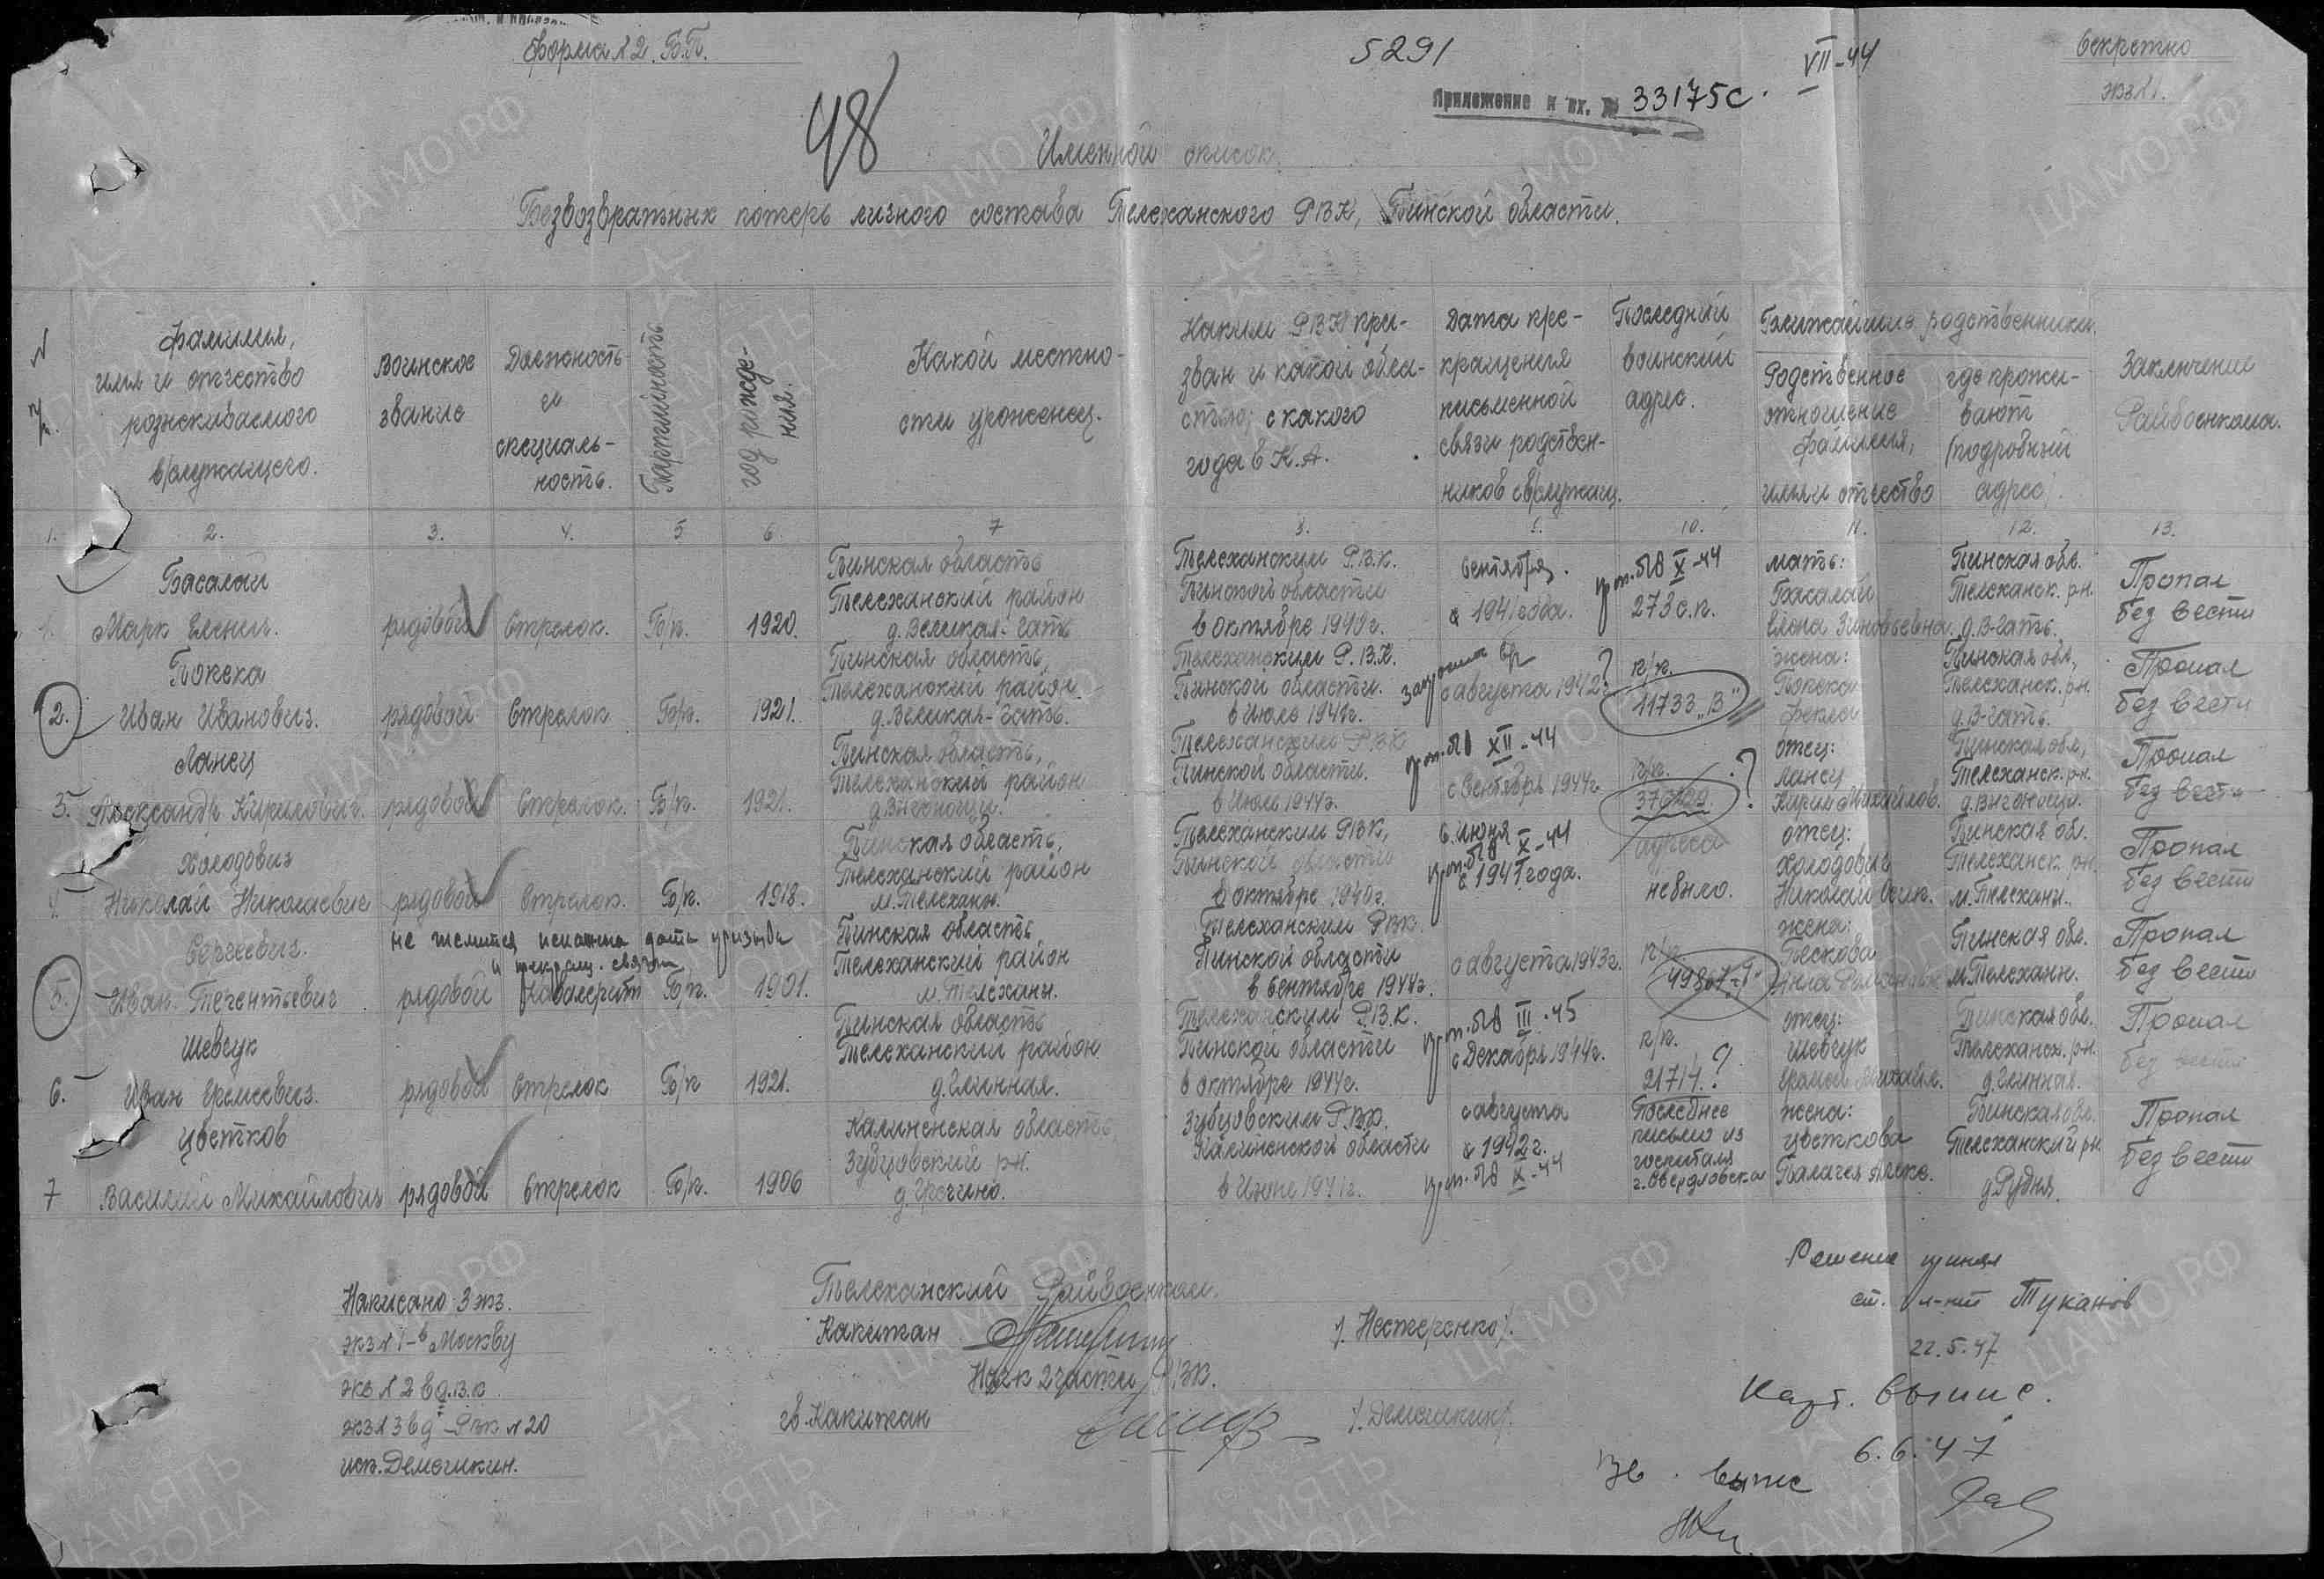 Форма №2. Б.П.
5291
VII-44
Секретно
экз №1.
48
Приложение к вх. № 33175с.
Именной список
Безвозвратных потерь личного состава Телеханского РВК, Пинской области.
№ п/п.
Фамилия, имя и отчество розыскиваемого в/служащего.
Воинское звание
Должность и специальность.
Партийность
год рождения.
Какой местности уроженец.
Каким РВК призван и какой области; с какого года в К.А.
Дата прекращения письменной связи родственников с в/служащ.
Последний воинский адрес.
Ближайшие родственники
Родственное отношение фамилия, имя и отчество
где проживают (подробный адрес).
Заключение Райвоенкома.
1. 2. 3. 4. 5 6. 7 8. 9. 10. 11. 12. 13.
Басалай
1. Марк рядовой Стрелок. Б/п. 1920.
Пинская область Телеханский район д. Великая-Гать
Телеханским Р.В.К. Пинской области в октябре 1940 г.
Сентября. с 1941 года.
X-44
273 с.п.
мать: Басалай Елена Зиновьевна
Пинская обл. Телеханск. рн. д. В-Гать.
Пропал без вести
Попека
2. Иван Иванович. рядовой Стрелок Б/п. 1921.
Пинская область, Телеханский район д. Великая-Гать.
Телеханским Р.В.К. Пинской области. в Июле 1941г.
с августа 1942 ?
п/п. 11733 "В"
жена: Попека Фекла
Пинская обл, Телеханск. рн. д. В-Гать.
Пропал без вести
Ланец
3. Александр Кирилович. рядовой Стрелок. Б/п. 1921.
Пинская область, Телеханский район д. Выгонощи.
Телеханским РВК Пинской области. в Июль 1944г.
XII-44
с Сентября 1944г
п/п. ?
отец: Ланец Кирил Михайлов.
Пинская обл, Телеханск. рн. д. Выгонощи.
Пропал без вести
Холодович
4. Николай Николаевич рядовой Стрелок. Б/п. 1918.
Пинская область, Телеханский район м. Телеханы.
Телеханским РВК, Пинской области в октябре 1940г.
с июня X-44
с 1941 года.
адреса не было.
отец: Холодович Николай Осип.
Пинская обл. Телеханск. рн. м. Телеханы.
Пропал без вести
Сергеевич.
не числится дата призыва
и прекращ. связи
5. Иван Терентьевич рядовой Кавалерист Б/п. 1901.
Пинская область Телеханский район м. Телеханы.
Телеханским РВК. Пинской области в Сентябре 1944г.
с августа 1943г.
п/п.
жена: Пескова Анна
Пинская обл. м. Телеханы.
Пропал без вести
Шевчук
6. Иван Еремеевич. рядовой Стрелок Б/п 1921.
Пинская область Телеханский район д. Глинная.
Телеханским Р.В.К. Пинской области в октябре 1944г.
III-45
с Декабря 1944г.
п/п. 21714. ?
отец: Шевчук Еремей Михайл.
Пинская обл. Телеханск. рн. д. Глинная.
Пропал без вести
Цветков
7 Василий Михайлович рядовой Стрелок Б/п. 1906
Калиненская область Зубцовский рн.
Зубцовским РВК. Калиненской области в Июне 1941г.
с августа с 1942г.
X-44
Последнее письмо из госпиталя г. Свердловска
жена: Цветкова Пелагея Алекс.
Пинская обл. Телеханский рн д. Рудня.
Пропал без вести
Написано 3 экз.
экз №1-в Москву
экз №2 в О.В.К
экз №3 в д. РВК №20
исп. Демешкин.
Телеханский Райвоенком.
Капитан /. Нестеренко /.
Нач 2 части РВК.
гв. Капитан /. Демешкин /.
Решение принял
ст. л-нт Туканов
22.5.47
Карт. выпис.
6.6.47
Из. выпис